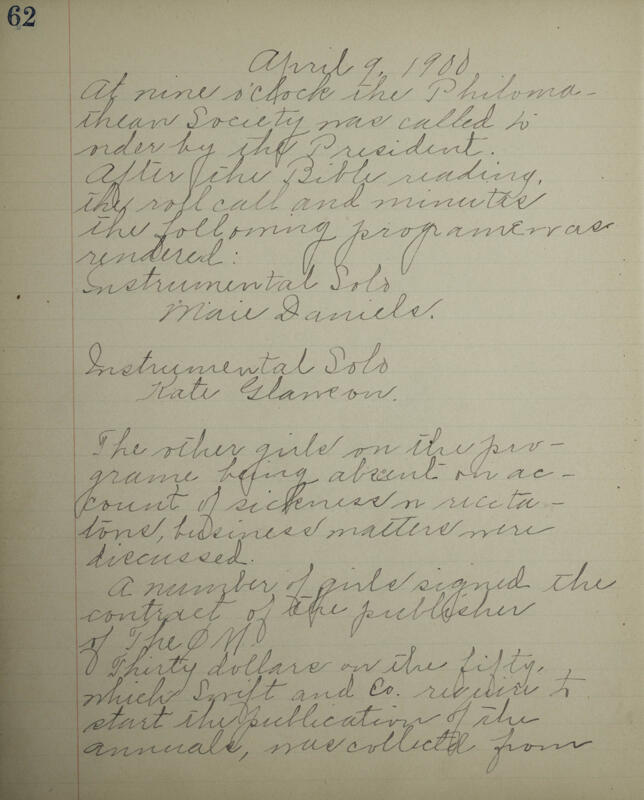 62
April 9, 1900
At nine o'clock the Philoma-
thean Society was called to
order by the President.
After the Bible reading,
the roll call and minutes
the following programe was
rendered:
Instrumental Solo
Maie Daniels.
Instrumental Solo
Kate
The other girls on the pro-
grame being absent on ac-
count of sickness or recita-
tons, business matters were
discussed.
A number of girls signed the
contract of the publisher
of The
Thirty dollars on the fifty,
which Swift and Co. require to
start the publication of the
annuals, was collected from